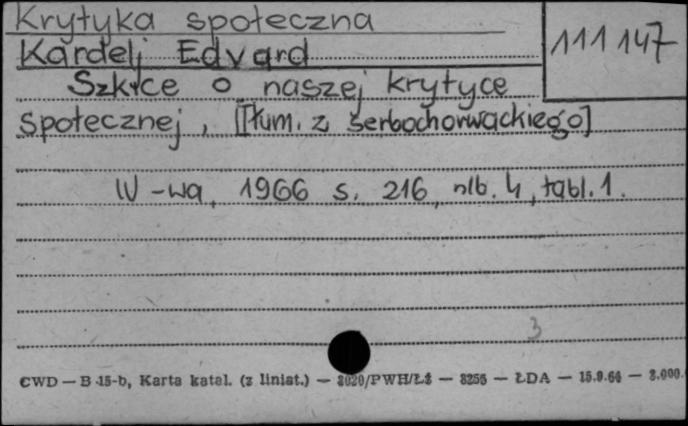 Krytyka społeczna
111 147
Kardelj Edvard
Szkice o naszej krytyce
społecznej, [tłum. z serbochorwackiego]
W-wa, 1966 s. 216, nlb. 4, tabl. 1.
3
CWD — B 15-b, Karta katal. (z liniat.) — 8020/PWH/Łż — 8256 — ŁDA — 15.9.64 — 3.000.